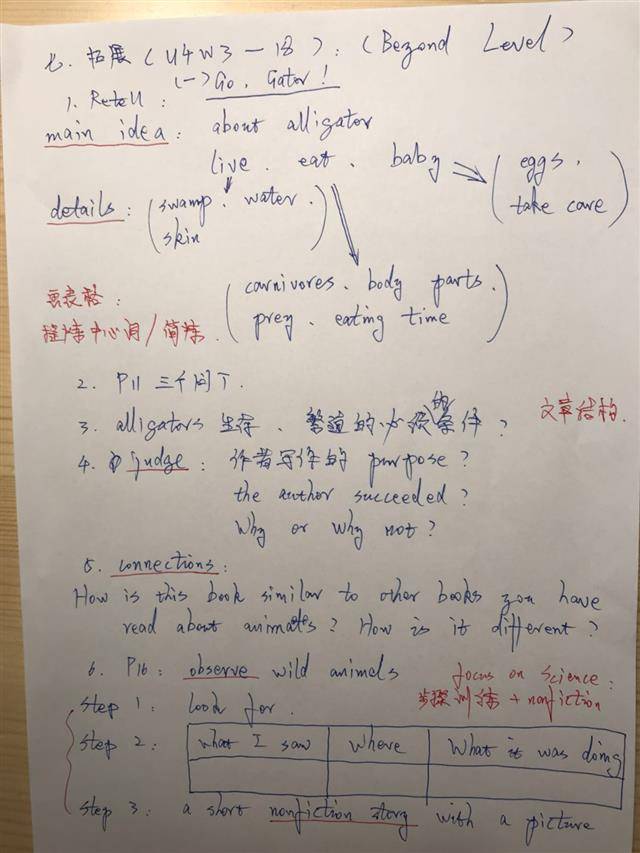 七. 拓展 (U4W3-18): (Bezond Level)
(一) Go, Gator!
1. Retell:
main idea: about alligator
live. eat. baby (eggs. take care)
details: (swamp. water. skin)
(carnivores. body parts. prey. eating time)
提炼中心词/简练.
2. P11 三个问T.
3. alligators 生存、的必须的条件? 文章结构.
4. judge: 作者写作的 purpose?
the author succeeded?
Why or why not?
5. connections:
How is this book similar to other books you have
read about animals? How is it different?
6. P16: observe wild animals focus on science:
步骤训练 + nonfiction
step 1: look for.
step 2: what I saw where What it was doing
step 3: a short nonfiction story with a picture